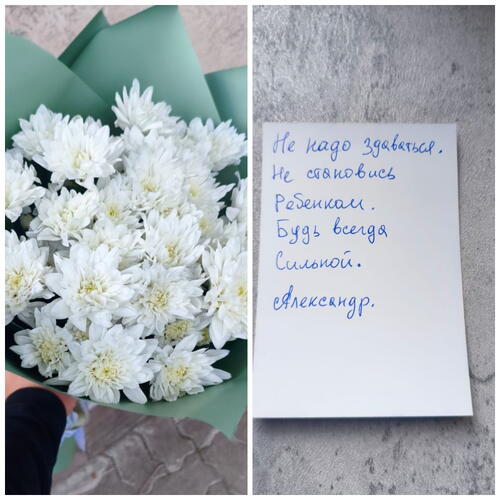 Не надо здаваться.
Не становись
Ребенком.
Будь всегда
Сильной.
Александр.